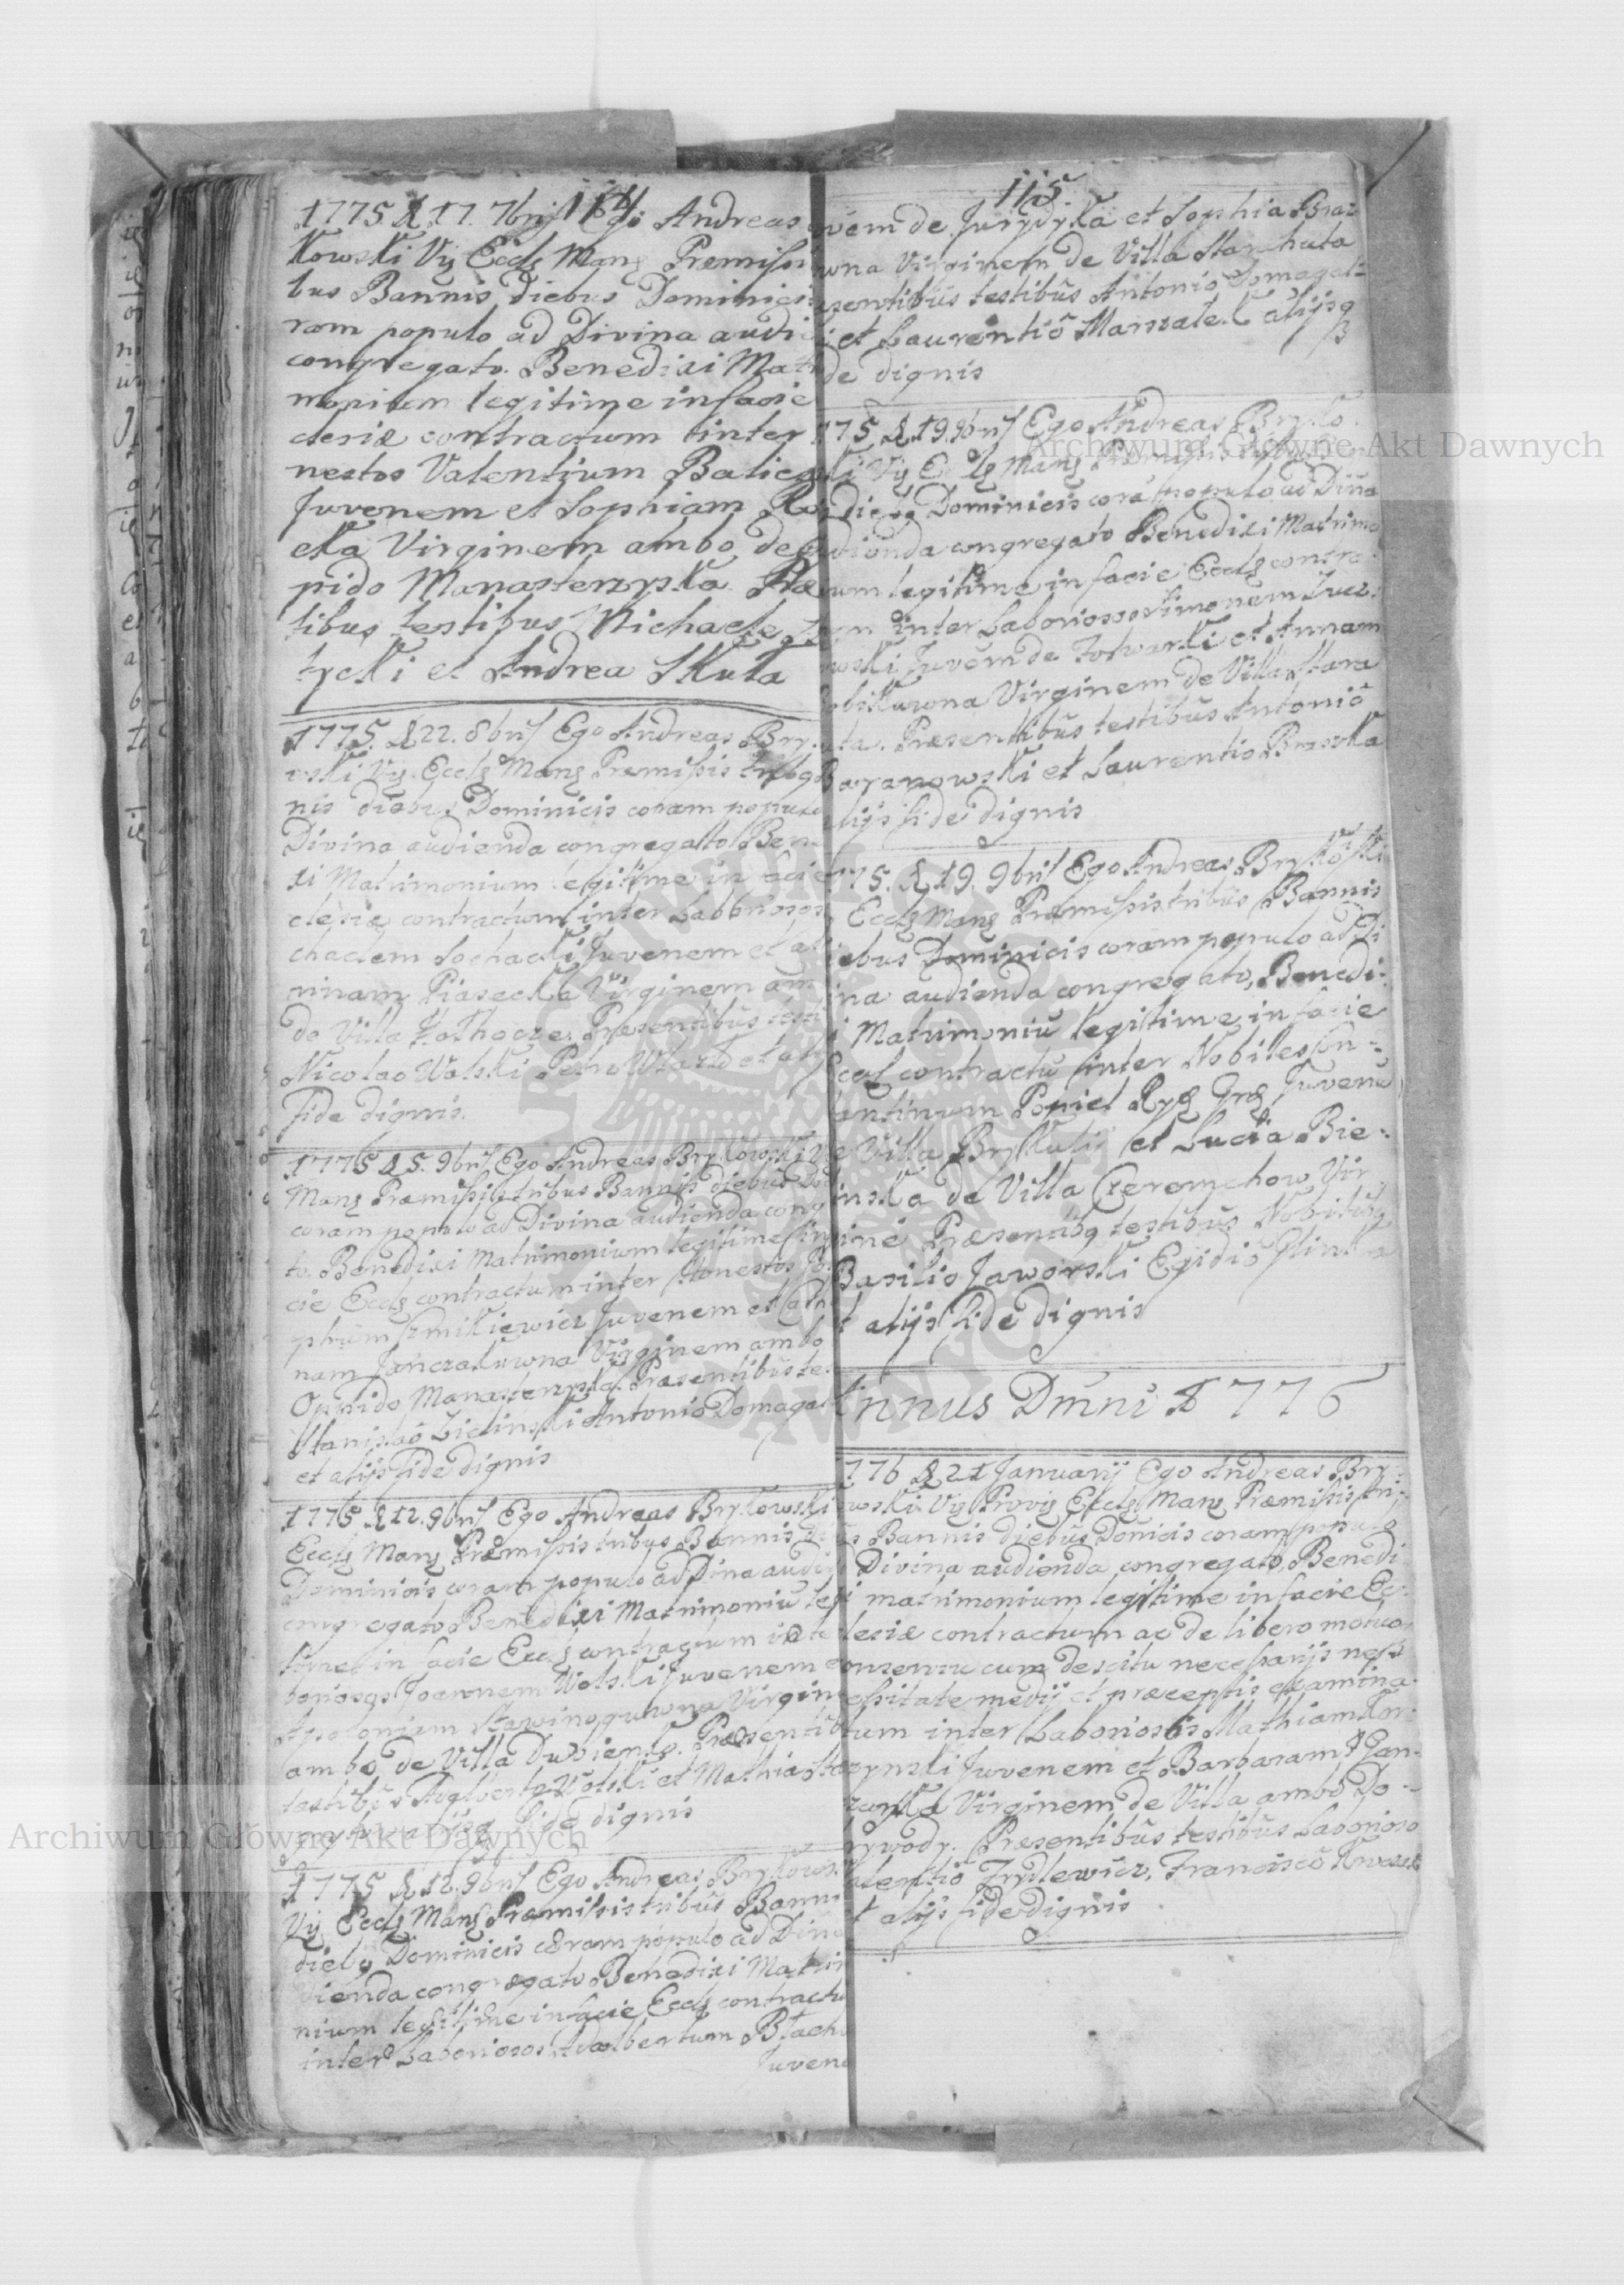 114
1775 d 17. 7bris Ego Andreas
kowski Vij Eccls Mang Premissi
bus Bannis diebus Dominici
ram populo ad Divina audi
congregato. Benedixi Mat
monium legitime in facie
clesiæ contractum inter
nestos Valentium Balic
Juvenem et Sophiam
cka Virginem ambo de
pido Manasterzyska Præ
tibus testibus Michaele
tycki et Andrea Skuta
1775. d 22. 8bris Ego Andreas Bry
wski Vij. Eccls Mang Premissis tribq
nis diebus Dominicis coram populo
Divina audienda congregato Ben
xi Matrimonium legitime in facie
clesiæ contractum inter Laboriosos
chaelem Sochacki Juvenem et
rinam Piasecka Virginem am
de Villa Folhocze. Præsentibus testi
Nicolao Wolski Petro et
Fide dignis.
1775 d 5. 9bris Ego Andreas Brykowski V
Mang Præmissis tribus Bannis diebus Do
coram populo ad Divina audienda cong
to. Benedixi Matrimonium legitime in
cie Eccls contractum inter Honestos
phum Szmikiewicz Juvenem et Cath
nam Janczakowna Virginem ambo
Oppido Manasterzyska. Præsentibus te
Stanislao Zielinski Antonio Domaga
et alijs Fide dignis
1775 d 12. 9bris Ego Andreas Brykowski
Eccls Mang Præmissis tribus Bannis
Dominicis coram populo ad Dina audi
congregato Benedixi Matrimoniu legi
time in facie Eccls contractum inte
boriosos Joannem Wolski Juvenem
Apoloniam Virgin
ambo de Villa Dubienko. Præsentib
testibus Adalberto Wolski et Mathia
alijsq Fide dignis
1775 d 12. 9bris Ego Andreas Brykows
Vij Eccls Mang Præmissis tribus Banni
diebq Dominicis coram populo ad Dina
dienda congregato Benedixi Matri
nium legitime in facie Eccls contractu
inter Laboriosos Adalbertum Blach
Juvene
115
vem de Jurydyka et Sophia Braz
wna Virginem de Villa Starahuta
sentibus testibus Antonio Domagal
et Laurentio Marszalek alijsq
de dignis
775 d 19. 9bris Ego Andreas Bryko
ki Vij Eccls Mang
Diebq Dominicis cora populo ad Dina
dienda congregato Benedixi Matrimo
um legitime in facie Eccls contra
inter Laboriosos Simonem
wski Juvem de Folwarki et Annam
Virginem de Villa Stara
uta. Præsentibus testibus Antonio
Baranowski et Laurentio
alijs fide dignis
775. d 19. 9bris Ego Andreas Brykowski
Eccls Mang Præmissis tribus Bannis
iebus Dominicis coram populo ad Di
ina audienda congregato, Benedi:
i Matrimoniu legitime in facie
Eccl contractu inter Nobiles Con=
antinum Popiel Juvene
e Villa Brykula et Lucia Bie=
inska de Villa Czeremchow Vir
ine Præsentibq testibus Nobilibq
Basilio Jaworski Egidio Glinka
t alijs fide dignis
Annus Dmni 1776
776 d 21 Januarij Ego Andreas Bry=
wski Vij Provis Eccls Mang Præmissis tri=
s Bannis diebus Donicis coram populo
Divina audienda congregato, Benedi
i matrimonium legitime in facie Ec=
lesiæ contractum ac de libero motuo
onsensu cum de scitu necessarijs
essitate medij et præceptis examina
tum inter Laboriosos Mathiam Kor=
zynski Juvenem et Barbaram Gan=
Virginem de Villa ambo Do=
rywody. Præsentibus testibus Laborioso
alentio Frydlewicz, Francisco
t alijs fide dignis
Archiwum Główne Akt Dawnych
Archiwum Główne Akt Dawnych